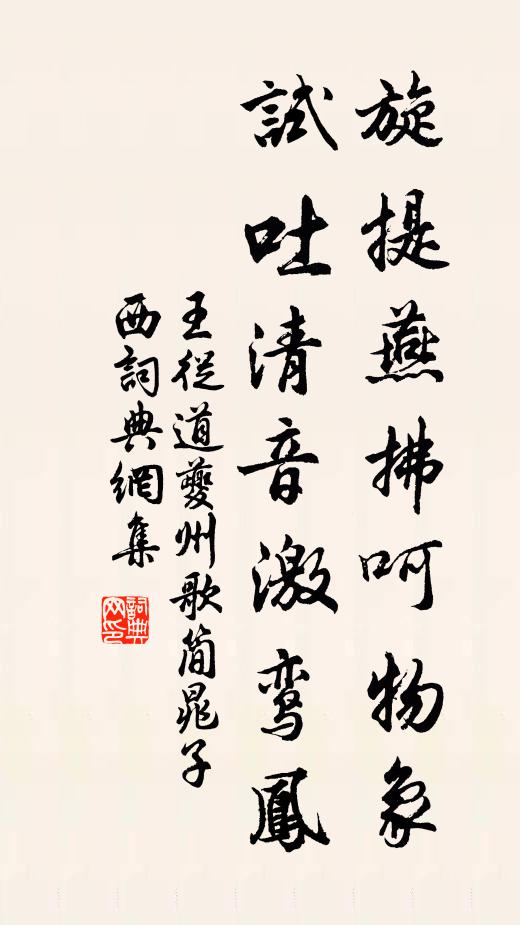 旋提燕拂呵物象
試吐清音激鸾鳳
王從道夔州歌簡晁子
西詞典網集
詞典
网印